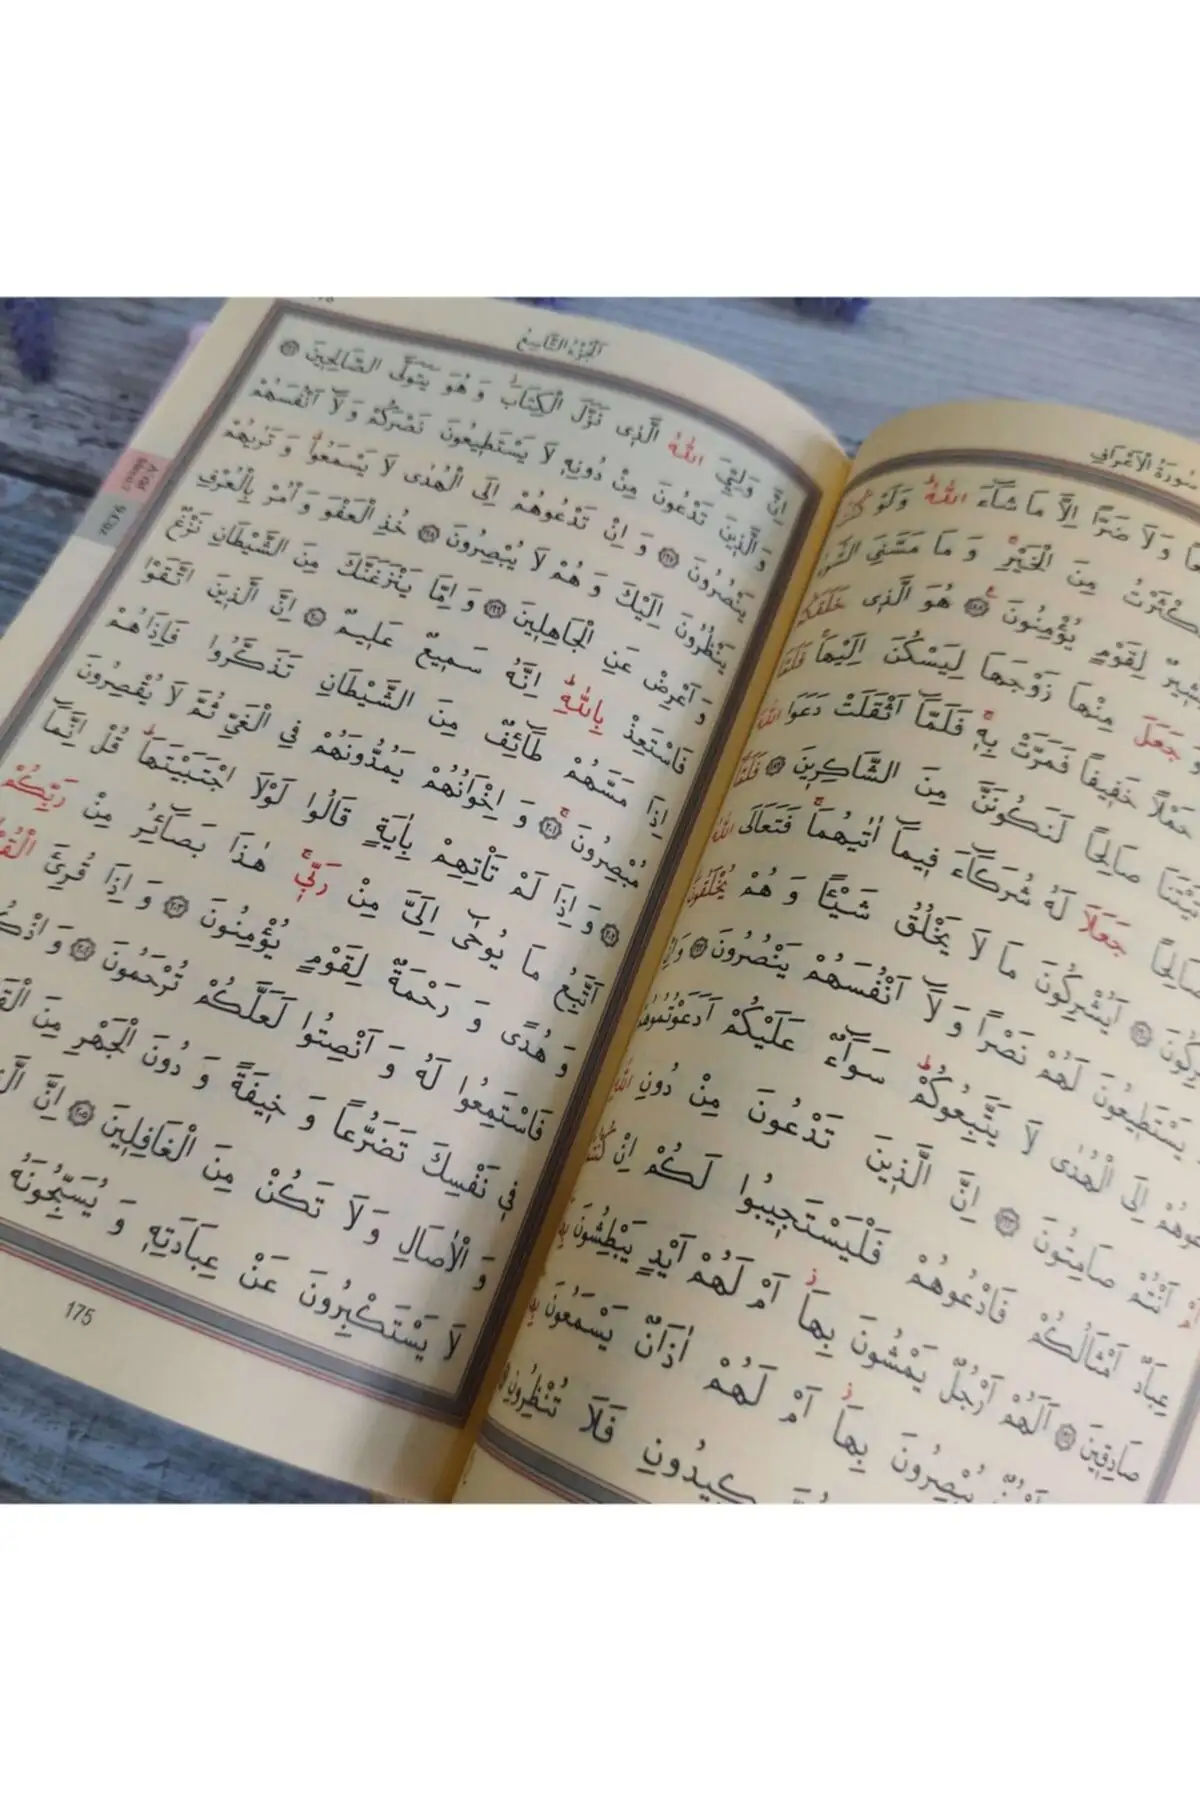 سُورَةُ الْاَعْرَافِ
وَلَا ضَرًّا اِلَّا مَا شَٓاءَ اللّٰهُ وَلَوْ
مِنَ الْخَيْرِ وَ مَا مَسَّنِيَ
لِقَوْمٍ يُؤْمِنُونَ ﴿١٨٨﴾ هُوَ الَّذ۪ى خَلَقَكُمْ
وَ جَعَلَ مِنْهَا زَوْجَهَا لِيَسْكُنَ اِلَيْهَا فَلَمَّا
حَمْلاً خَف۪يفاً فَمَرَّتْ بِه۪ فَلَمَّٓا اَثْقَلَتْ دَعَوَا اللّٰهَ
صَالِحاً لَنَكُونَنَّ مِنَ الشَّاكِر۪ينَ ﴿١٨٩﴾ فَلَمَّٓا
صَالِحاً جَعَلَا لَهُ شُرَكَٓاءَ ف۪يمَٓا اٰتٰيهُمَا فَتَعَالَى اللّٰهُ
﴿١٩٠﴾ اَيُشْرِكُونَ مَا لَا يَخْلُقُ شَيْئًا وَ هُمْ يُخْلَقُونَ
يَسْتَط۪يعُونَ لَهُمْ نَصْراً وَ لَٓا اَنْفُسَهُمْ يَنْصُرُونَ ﴿١٩٢﴾
اِلَى الْهُدٰى لَا يَتَّبِعُوكُمْ سَوَٓاءٌ عَلَيْكُمْ اَدَعَوْتُمُوهُمْ
اَمْ اَنْتُمْ صَامِتُونَ ﴿١٩٣﴾ اِنَّ الَّذ۪ينَ تَدْعُونَ مِنْ دُونِ اللّٰهِ
عِبَادٌ اَمْثَالُكُمْ فَادْعُوهُمْ فَلْيَسْتَج۪يبُوا لَكُمْ اِنْ كُنْتُمْ
صَادِق۪ينَ ﴿١٩٤﴾ اَلَهُمْ اَرْجُلٌ يَمْشُونَ بِهَا اَمْ لَهُمْ اَيْدٍ يَبْطِشُونَ
يُبْصِرُونَ بِهَا اَمْ لَهُمْ اٰذَانٌ يَسْمَعُونَ
ك۪يدُونِ فَلَا تُنْظِرُونِ
اَلْجُزْءُ التَّاسِعُ
اِنَّ وَلِيِّيَ اللّٰهُ الَّذ۪ى نَزَّلَ الْكِتَابَ وَ هُوَ يَتَوَلَّى الصَّالِح۪ينَ ﴿١٩٦﴾
وَ الَّذ۪ينَ تَدْعُونَ مِنْ دُونِه۪ لَا يَسْتَط۪يعُونَ نَصْرَكُمْ وَ لَٓا اَنْفُسَهُمْ
يَنْصُرُونَ ﴿١٩٧﴾ وَ اِنْ تَدْعُوهُمْ اِلَى الْهُدٰى لَا يَسْمَعُوا وَ تَرٰيهُمْ
يَنْظُرُونَ اِلَيْكَ وَ هُمْ لَا يُبْصِرُونَ ﴿١٩٨﴾ خُذِ الْعَفْوَ وَ أْمُرْ بِالْعُرْفِ
وَ اَعْرِضْ عَنِ الْجَاهِل۪ينَ ﴿١٩٩﴾ وَ اِمَّا يَنْزَغَنَّكَ مِنَ الشَّيْطَانِ نَزْغٌ
فَاسْتَعِذْ بِاللّٰهِ اِنَّهُ سَم۪يعٌ عَل۪يمٌ ﴿٢٠٠﴾ اِنَّ الَّذ۪ينَ اتَّقَوْا
اِذَا مَسَّهُمْ طَٓائِفٌ مِنَ الشَّيْطَانِ تَذَكَّرُوا فَاِذَاهُمْ
مُبْصِرُونَ ﴿٢٠١﴾ وَ اِخْوَانُهُمْ يَمُدُّونَهُمْ فِي الْغَيِّ ثُمَّ لَا يُقْصِرُونَ
﴿٢٠٢﴾ وَ اِذَا لَمْ تَأْتِهِمْ بِاٰيَةٍ قَالُوا لَوْلَا اجْتَبَيْتَهَا قُلْ اِنَّمَٓا
اَتَّبِعُ مَا يُوحٰٓى اِلَيَّ مِنْ رَبّ۪ي هٰذَا بَصَٓائِرُ مِنْ رَبِّكُمْ
وَ هُدًى وَ رَحْمَةٌ لِقَوْمٍ يُؤْمِنُونَ ﴿٢٠٣﴾ وَ اِذَا قُرِئَ
فَاسْتَمِعُوا لَهُ وَ اَنْصِتُوا لَعَلَّكُمْ تُرْحَمُونَ ﴿٢٠٤﴾
ف۪ي نَفْسِكَ تَضَرُّعاً وَ خ۪يفَةً وَ دُونَ الْجَهْرِ مِنَ
وَ الْاٰصَالِ وَ لَا تَكُنْ مِنَ الْغَافِل۪ينَ ﴿٢٠٥﴾ اِنَّ
لَا يَسْتَكْبِرُونَ عَنْ عِبَادَتِه۪ وَ يُسَبِّحُونَهُ
175